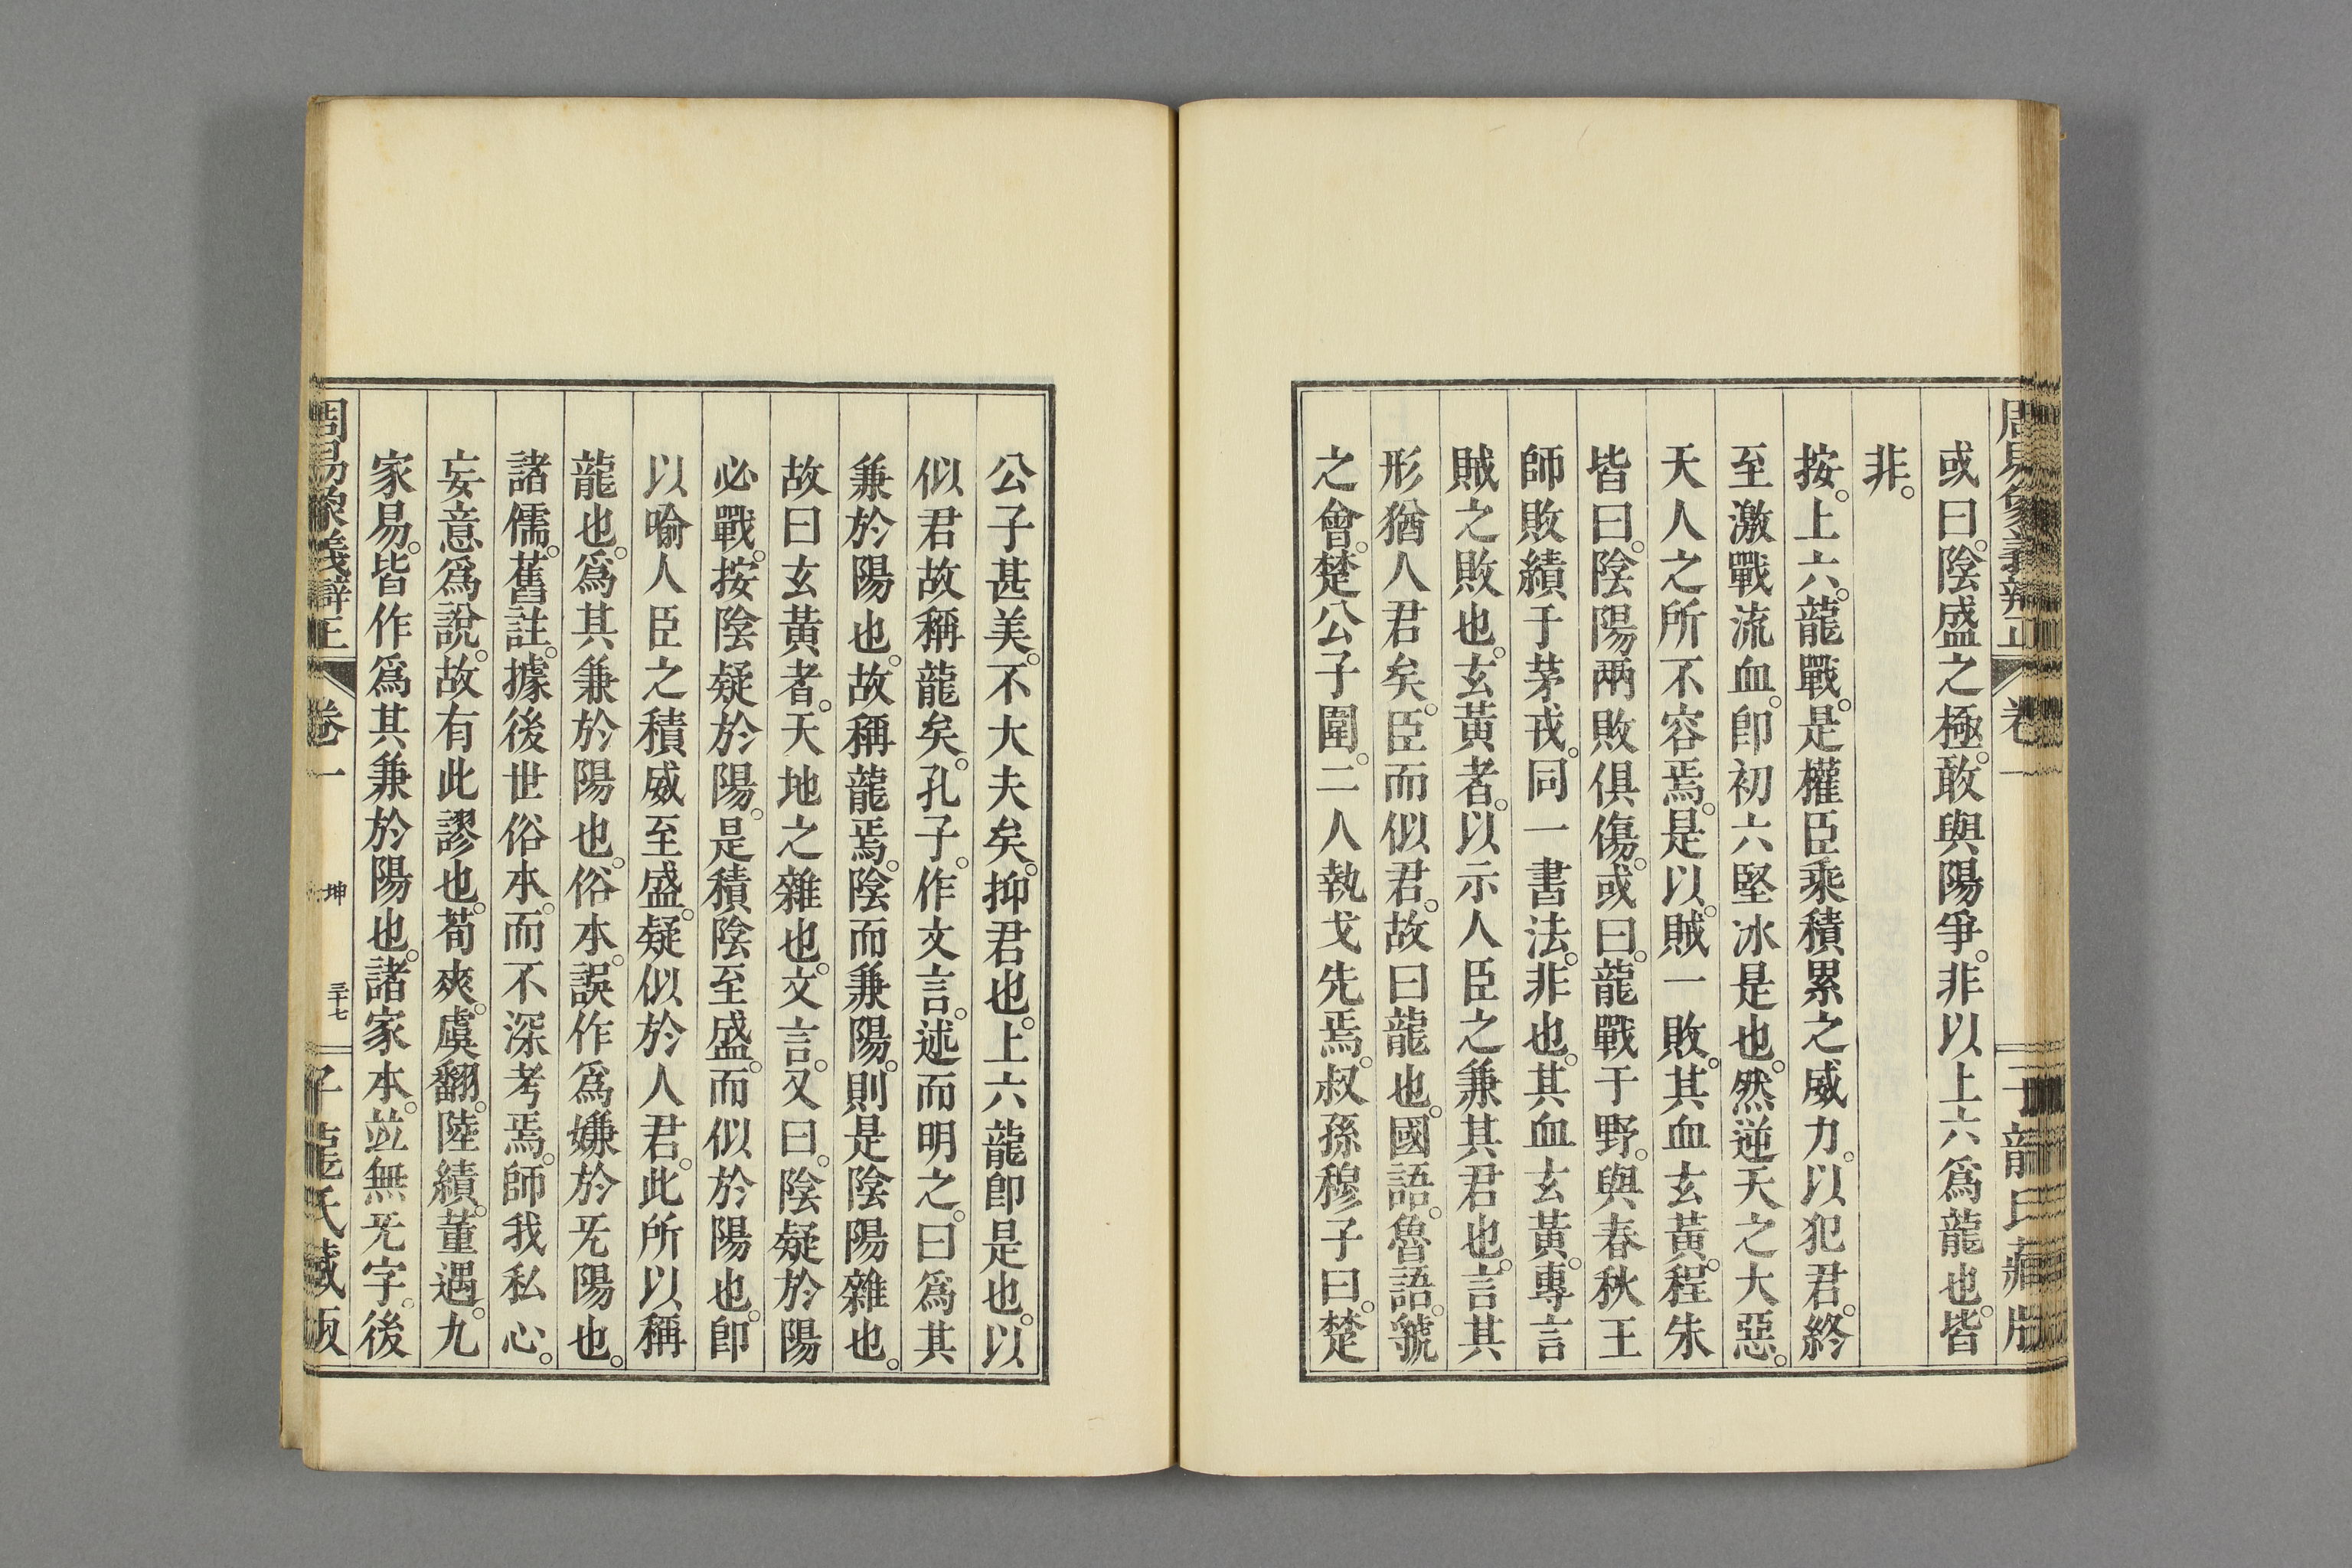 周易象義辯正 卷一 子龍氏藏版
或曰。陰盛之極。敢與陽爭。非以上六爲龍也。皆
非。
按。上六。龍戰。是權臣乘積累之威力。以犯君。終
至激戰流血。卽初六堅冰是也。然逆天之大惡。
天人之所不容焉。是以。賊一敗。其血玄黃。程朱
皆曰。陰陽兩敗俱傷。或曰。龍戰于野。與春秋王
師敗績于茅戎。同一書法。非也。其血玄黃。專言
賊之敗也。玄黃者。以示人臣之兼其君也。言其
形猶人君矣。臣而似君。故曰龍也。國語。魯語。虢
之會。楚公子圍。二人執戈先焉。叔孫穆子曰。楚
公子甚美。不大夫矣。抑君也。上六龍卽是也。以
似君故稱龍矣。孔子。作文言。述而明之。曰爲其
兼於陽也。故稱龍焉。陰而兼陽。則是陰陽雜也。
故曰玄黃者。天地之雜也。文言。又曰。陰疑於陽
必戰。按陰疑於陽。是積陰至盛。而似於陽也。卽
以喻人臣之積威至盛。疑似於人君。此所以稱
龍也。爲其兼於陽也。俗本。誤作爲嫌於无陽也。
諸儒。舊註。據後世俗本。而不深考焉。師我私心。
妄意爲說。故有此謬也。荀爽。虞翻。陸績。董遇。九
家易。皆作爲其兼於陽也。諸家本。並無无字。後
周易象義辯正 卷一 坤 三十七 子龍氏藏版